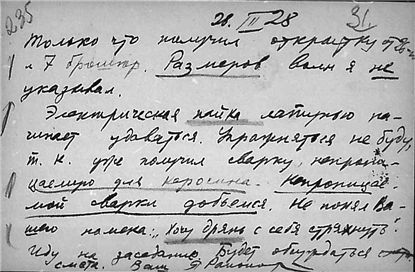 235
28. III 28 31.
Только что получил открытку от
и 7 брошюр. Размеров волн я не
указывал.
Электрическая пайка латунью на-
чинает удаваться. Упражняться не буду,
т. к. уже получил сварку, непрони-
цаемую для керосина. Непроницае-
мой сварки добьемся. Не понял Ва-
шего намека: "Хочу дрянь с себя стряхнуть".
Иду на заседание. Будет обсуждаться
смета. Ваш Я. Рапопорт